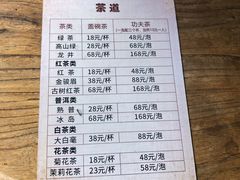 茶道
茶类 盖碗茶 功夫茶
绿茶 18元/杯 48元/泡
高山绿 28元/杯 68元/泡
龙井 68元/杯 168元/泡
红茶类
红茶 18元/杯 48元/泡
金骏眉 38元/杯 88元/泡
古树红茶 68元/杯 168元/泡
普洱茶类
熟普 28元/杯 68元/泡
冰岛 68元/杯 168元/泡
白茶类
大白毫 38元/杯 88元/泡
花茶类
菊花茶 18元/杯 48元/泡
茉莉花茶 23元/杯 58元/泡